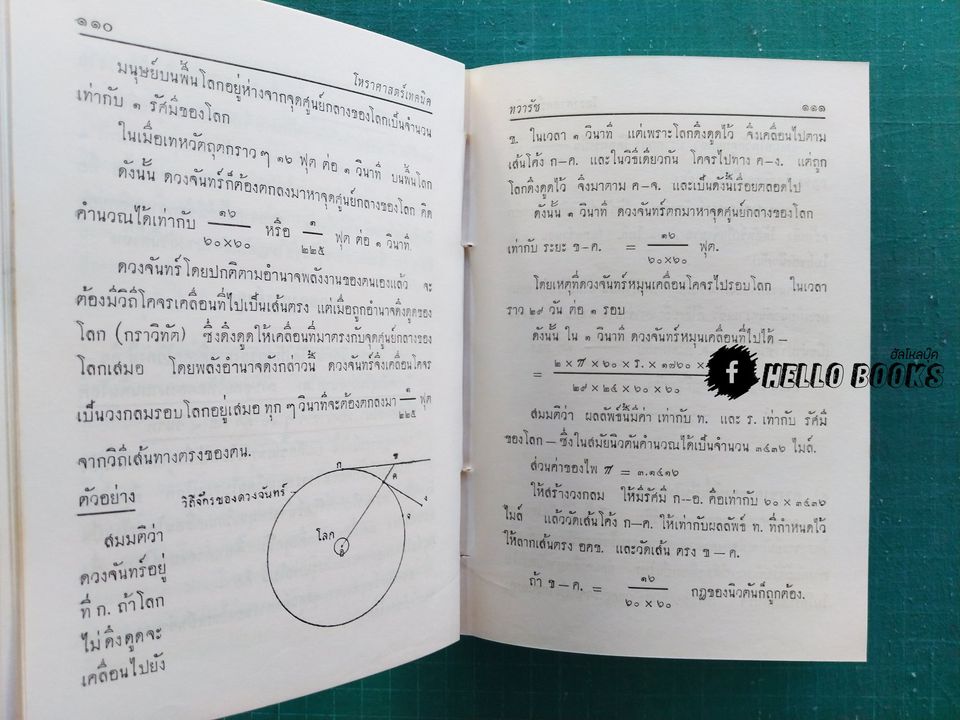 ๑๑๐
โหราศาสตร์เทคนิค
มนุษย์บนพื้นโลกอยู่ห่างจากจุดศูนย์กลางของโลกเป็นจำนวน
เท่ากับ ๑ รัศมีของโลก
ในเมื่อเทหวัตถุตกราว ๆ ๑๖ ฟุต ต่อ ๑ วินาที บนพื้นโลก
ดังนั้น ดวงจันทร์ก็ต้องตกลงมาหาจุดศูนย์กลางของโลก คิด
คำนวณได้เท่ากับ ๑๖/๖๐×๖๐ หรือ ๑/๒๒๕ ฟุต ต่อ ๑ วินาที
ดวงจันทร์โดยปกติตามอำนาจพลังงานของตนเองแล้ว จะ
ต้องมีวิถีโคจรเคลื่อนที่ไปเป็นเส้นตรง แต่เมื่อถูกอำนาจดึงดูดของ
โลก (กราวิทัต) ซึ่งดึงดูดให้เคลื่อนที่มาตรงกับจุดศูนย์กลางของ
โลกเสมอ โดยพลังอำนาจดังกล่าวนี้ ดวงจันทร์จึงเคลื่อนโคจร
เป็นวงกลมรอบโลกอยู่เสมอ ทุก ๆ วินาทีจะต้องตกลงมา ๑/๒๒๕ ฟุต
จากวิถีเส้นทางตรงของตน.
ตัวอย่าง
สมมติว่า
ดวงจันทร์อยู่
ที่ ก. ถ้าโลก
ไม่ดึงดูดจะ
เคลื่อนไปยัง
วิถีจักรของดวงจันทร์
ก
ข
ค
ง
จ
โลก
ทวารัช
๑๑๑
ข. ในเวลา ๑ วินาที แต่เพราะโลกดึงดูดไว้ จึงเคลื่อนไปตาม
เส้นโค้ง ก-ค. และในวิธีเดียวกัน โคจรไปทาง ค-ง. แต่ถูก
โลกดึงดูดไว้ จึงมาตาม ค-จ. และเป็นดังนี้เรื่อยตลอดไป
ดังนั้น ๑ วินาที ดวงจันทร์ตกมาหาจุดศูนย์กลางของโลก
เท่ากับ ระยะ ข-ค. = ๑๖/๖๐×๖๐ ฟุต.
โดยเหตุที่ดวงจันทร์หมุนเคลื่อนโคจรไปรอบโลก ในเวลา
ราว ๒๙ วัน ต่อ ๑ รอบ
ดังนั้น ใน ๑ วินาที ดวงจันทร์หมุนเคลื่อนที่ไปได้ –
= ๒ × π × ๖๐ × ร. × ๑๗๖๐ ×
๒๙ × ๒๔ × ๖๐ ×
สมมติว่า ผลลัพธ์นี้มีค่า เท่ากับ ท. และ ร. เท่ากับ รัศมี
ของโลก – ซึ่งในสมัยนิวตันคำนวณได้เป็นจำนวน ๓๔๓๖ ไมล์.
ส่วนค่าของไพ π = ๓.๑๔๑๖
ให้สร้างวงกลม ให้มีรัศมี ก--อ. คือเท่ากับ ๖๐ × ๓๔๓๖
ไมล์ แล้ววัดเส้นโค้ง ก–ค. ให้เท่ากับผลลัพธ์ ท. ที่กำหนดไว้
ให้ลากเส้นตรง อคข. และวัดเส้น ตรง ข – ค.
ถ้า ข – ค. = ๑๖/๖๐ × ๖๐ กฎของนิวตันก็ถูกต้อง.
ฮัลโหลบุ๊ค
f HELLO BOOKS